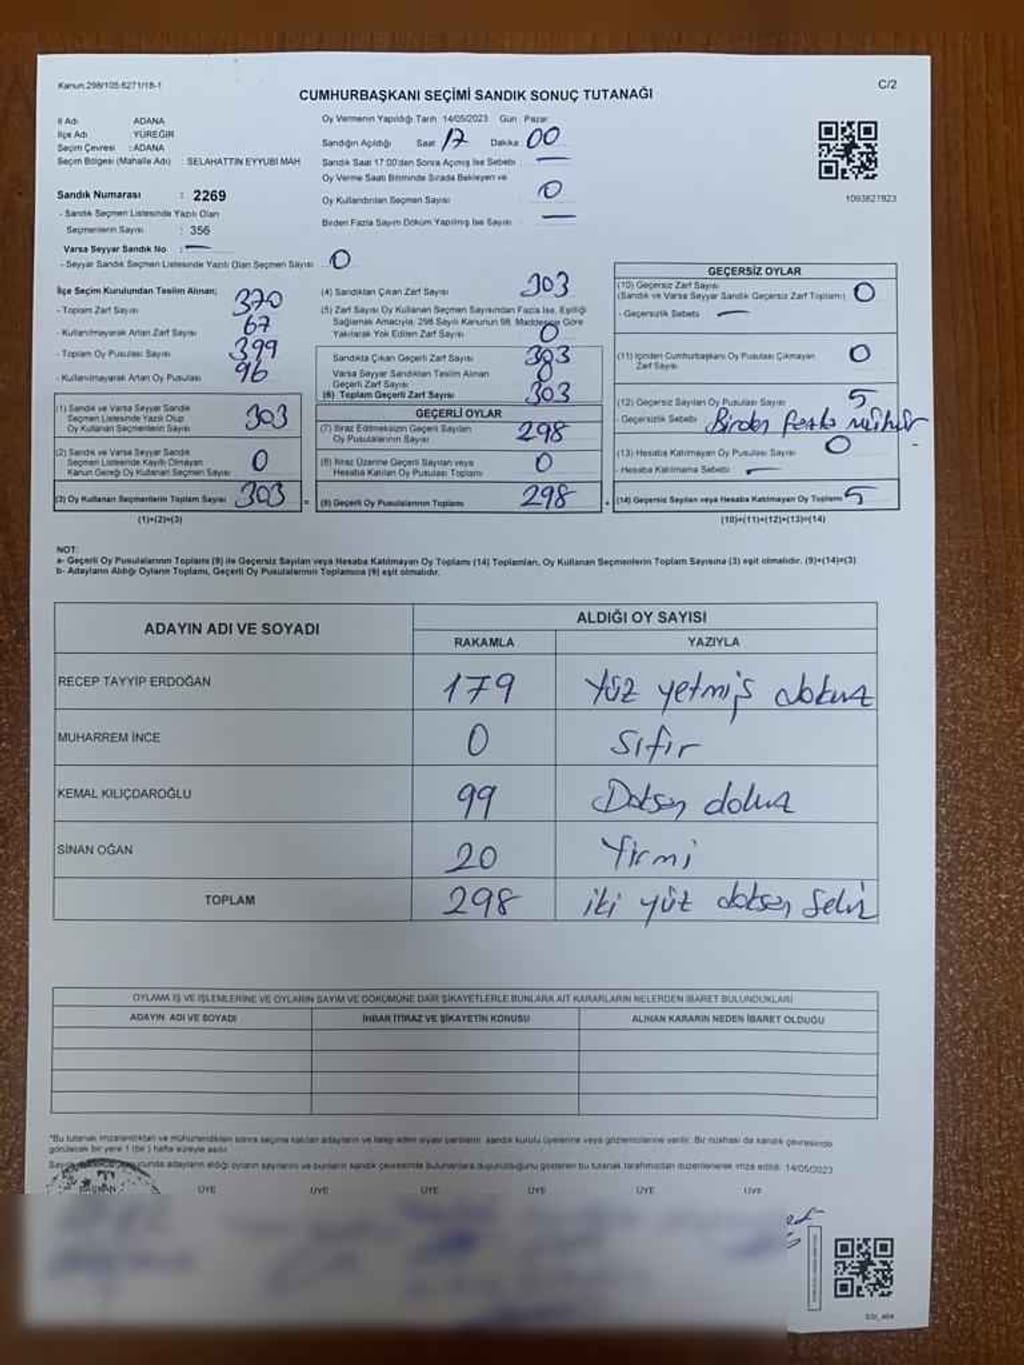 Kanun:298/105-6271/18-1
C/2
CUMHURBAŞKANI SEÇİMİ SANDIK SONUÇ TUTANAĞI
İl Adı ADANA
İlçe Adı YÜREĞİR
Seçim Çevresi : ADANA
Seçim Bölgesi (Mahalle Adı) : SELAHATTİN EYYUBİ MAH
Sandık Numarası : 2269
- Sandık Seçmen Listesinde Yazılı Olan
Seçmenlerin Sayısı : 356
Varsa Seyyar Sandık No : —
- Seyyar Sandık Seçmen Listesinde Yazılı Olan Seçmen Sayısı 0
Oy Vermenin Yapıldığı Tarih 14/05/2023 Gün : Pazar
Sandığın Açıldığı Saat 17 Dakika 00
Sandık Saat 17:00'den Sonra Açılmış İse Sebebi : —
Oy Verme Saati Bitiminde Sırada Bekleyen ve
Oy Kullandırılan Seçmen Sayısı 0
Birden Fazla Sayım Döküm Yapılmış İse Sayısı —
1093827823
İlçe Seçim Kurulundan Teslim Alınan;
- Toplam Zarf Sayısı 370
- Kullanılmayarak Artan Zarf Sayısı 67
- Toplam Oy Pusulası Sayısı 399
- Kullanılmayarak Artan Oy Pusulası 96
(1) Sandık ve Varsa Seyyar Sandık
Seçmen Listesinde Yazılı Olup
Oy Kullanan Seçmenlerin Sayısı 303
(2) Sandık ve Varsa Seyyar Sandık
Seçmen Listesinde Kayıtlı Olmayan
Kanun Gereği Oy Kullanan Seçmen Sayısı 0
(3) Oy Kullanan Seçmenlerin Toplam Sayısı 303 =
(1)+(2)=(3)
(4) Sandıktan Çıkan Zarf Sayısı 303
(5) Zarf Sayısı Oy Kullanan Seçmen Sayısından Fazla İse, Eşitliği
Sağlamak Amacıyla, 298 Sayılı Kanunun 98. Maddesine Göre
Yakılarak Yok Edilen Zarf Sayısı 0
Sandıkta Çıkan Geçerli Zarf Sayısı 303
Varsa Seyyar Sandıktan Teslim Alınan
Geçerli Zarf Sayısı 0
(6) Toplam Geçerli Zarf Sayısı 303
GEÇERLİ OYLAR
(7) İtiraz Edilmeksizin Geçerli Sayılan
Oy Pusulalarının Sayısı 298
(8) İtiraz Üzerine Geçerli Sayılan veya
Hesaba Katılan Oy Pusulası Toplamı 0
(9) Geçerli Oy Pusulalarının Toplamı 298 +
GEÇERSİZ OYLAR
(10) Geçersiz Zarf Sayısı
(Sandık ve Varsa Seyyar Sandık Geçersiz Zarf Toplamı) 0
- Geçersizlik Sebebi —
(11) İçinden Cumhurbaşkanı Oy Pusulası Çıkmayan
Zarf Sayısı 0
(12) Geçersiz Sayılan Oy Pusulası Sayısı 5
- Geçersizlik Sebebi Birden fazla mühür
(13) Hesaba Katılmayan Oy Pusulası Sayısı 0
- Hesaba Katılmama Sebebi —
(14) Geçersiz Sayılan veya Hesaba Katılmayan Oy Toplamı 5
(10)+(11)+(12)+(13)=(14)
NOT:
a- Geçerli Oy Pusulalarının Toplamı (9) ile Geçersiz Sayılan veya Hesaba Katılmayan Oy Toplamı (14) Toplamları, Oy Kullanan Seçmenlerin Toplam Sayısına (3) eşit olmalıdır. (9)+(14)=(3)
b- Adayların Aldığı Oyların Toplamı, Geçerli Oy Pusulalarının Toplamına (9) eşit olmalıdır.
ADAYIN ADI VE SOYADI
ALDIĞI OY SAYISI
RAKAMLA YAZIYLA
RECEP TAYYİP ERDOĞAN 179 Yüz yetmiş dokuz
MUHARREM İNCE 0 Sıfır
KEMAL KILIÇDAROĞLU 99 Doksan dokuz
SİNAN OĞAN 20 Yirmi
TOPLAM 298 iki yüz doksan sekiz
OYLAMA İŞ VE İŞLEMLERİNE VE OYLARIN SAYIM VE DÖKÜMÜNE DAİR ŞİKAYETLERLE BUNLARA AİT KARARLARIN NELERDEN İBARET BULUNDUKLARI
ADAYIN ADI VE SOYADI İHBAR İTİRAZ VE ŞİKAYETİN KONUSU ALINAN KARARIN NEDEN İBARET OLDUĞU
*Bu tutanak imzalandıktan ve mühürlendikten sonra seçime katılan adayların ve talep eden siyasi partilerin sandık kurulu üyelerine veya gözlemcilerine verilir. Bir nüshası da sandık çevresinde
görülecek bir yere 1 (bir) hafta süreyle asılır.
adayların aldığı oyların sayılarını ve bunların sandık çevresinde bulunanlara duyurulduğunu gösteren bu tutanak tarafımızdan düzenlenerek imza edildi. 14/05/2023
ÜYE ÜYE ÜYE ÜYE ÜYE ÜYE